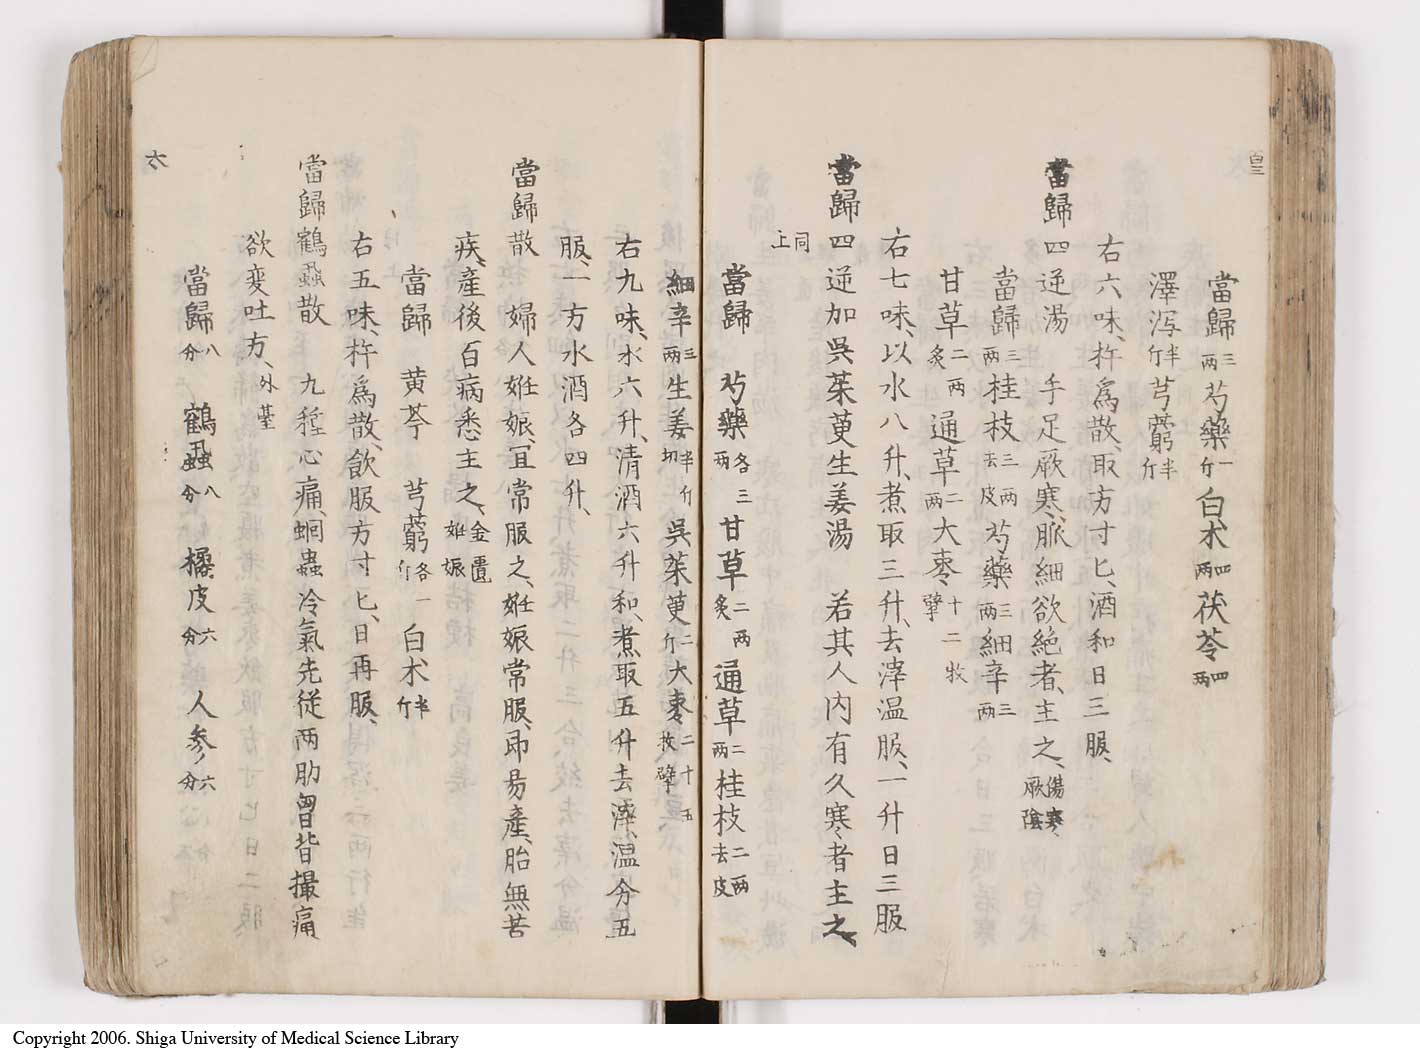 當歸三兩芍藥一斤白朮四兩茯苓四兩
澤泻半斤芎藭半斤
右六味、杵為散、取方寸匕、酒和日三服、
當歸四逆湯 手足厥寒、脈細欲絕者、主之、傷寒厥陰
當歸三兩桂枝三兩去皮芍藥三兩細辛三兩
甘草二兩炙通草二兩大棗十二枚擘
右七味、以水八升、煮取三升、去滓温服、一升日三服
當歸四逆加吳茱萸生姜湯 若其人內有久寒者主之
同上
當歸 芍藥各三兩 甘草二兩炙 通草二兩桂枝二兩去皮
細辛三兩生姜半斤切吳茱萸二斤大棗二十五枚擘
右九味、水六升、清酒六升和、煮取五升去滓、温分五
服、一方水酒各四升、
當歸散 婦人姙娠、宜常服之、姙娠常服、即易產、胎無苦
疾、產後百病悉主之、金匱姙娠
當歸 黄芩 芎藭各一斤 白朮半斤
右五味、杵為散、飲服方寸匕、日再服、
當歸鶴蝨散 九種心痛、蛔蟲冷氣先從兩肋胷背撮痛
欲变吐方、外䑓
當歸八分 鶴虱八分 橘皮六分 人参六分